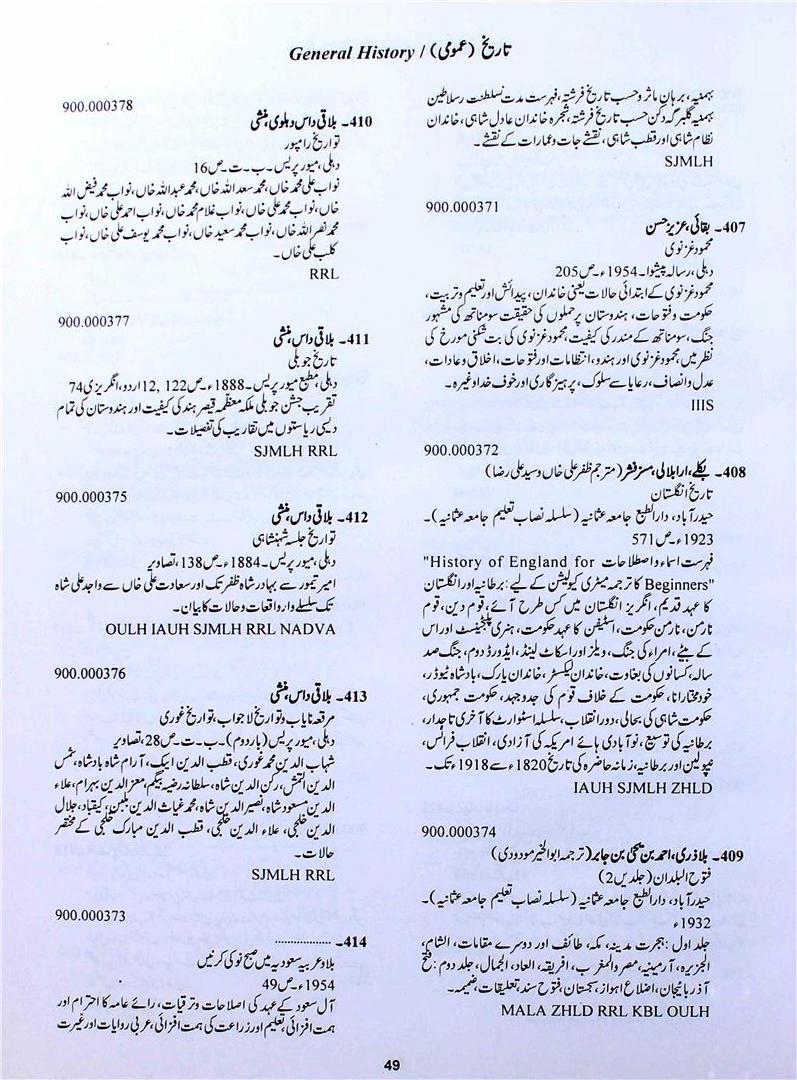 General History / تاریخ (عمومی)
بہمنیہ، برہان ماثر وحسب تاریخ فرشتہ، فہرست مدت سلطنت رسلاطین
بہمنیہ گلبرگہ دکن حسب تاریخ فرشتہ، شجرہ خاندان عادل شاہی، خاندان
نظام شاہی اور قطب شاہی، نقشے جات وعمارات کے نقشے۔
SJMLH
900.000371
407۔ بقائی، عزیز حسن
محمود غزنوی
دہلی، رسالہ پیشوا۔ 1954ء۔ ص205
محمود غزنوی کے ابتدائی حالات یعنی خاندان، پیدائش اور تعلیم وتربیت،
حکومت وفتوحات، ہندوستان پر حملوں کی حقیقت سومناتھ کی مشہور
جنگ، سومناتھ کے مندر کی کیفیت، محمود غزنوی کی بت شکنی مورخ کی
نظر میں، محمود غزنوی اور ہندو، انتظامات اور فتوحات، اخلاق وعادات،
عدل وانصاف، رعایا سے سلوک، پرہیزگاری اور خوف خدا وغیرہ۔
IIIS
900.000372
408۔ بکلے، ارابلالی، مسز فشر (مترجم ظفر علی خاں وسید علی رضا)
تاریخ انگلستان
حیدرآباد، دارالطبع جامعہ عثمانیہ (سلسلہ نصاب تعلیم جامعہ عثمانیہ)۔
1923ء۔ ص571
فہرست اسماء واصطلاحات "History of England for
Beginners" کا ترجمہ میٹری کیولیشن کے لیے: برطانیہ اور انگلستان
کا عہد قدیم، انگریز انگلستان میں کس طرح آئے، قوم دین، قوم
نارمن، نارمن حکومت، اسٹیفن کا عہد حکومت، ہنری پلنجنسٹ اور اس
کے بیٹے، امراء کی جنگ، ویلز اور اسکاٹ لینڈ، ایڈورڈ دوم، جنگ صد
سالہ، کسانوں کی بغاوت، خاندان لیکسٹر، خاندان یارک، بادشاہ ٹیوڈر،
خودمختارانا، حکومت کے خلاف قوم کی جدوجہد، حکومت جمہوری،
حکومت شاہی کی بحالی، دور انقلاب، سلسلہ اسٹوارٹ کا آخری تاجدار،
برطانیہ کی توسیع، نوآبادی ہائے امریکہ کی آزادی، انقلاب فرانس،
نپولین اور برطانیہ، زمانہ حاضرہ کی تاریخ 1820ء سے 1918ء تک۔
IAUH SJMLH ZHLD
900.000374
409۔ بلاذری، احمد بن یحیی بن جابر (ترجمہ ابوالخیر مودودی)
فتوح البلدان (جلدیں 2)
حیدرآباد، دارالطبع جامعہ عثمانیہ (سلسلہ نصاب تعلیم جامعہ عثمانیہ)۔
1932ء
جلد اول: ہجرت مدینہ، مکہ، طائف اور دوسرے مقامات، الشام،
الجزیرہ، آرمینیہ، مصر والمغرب، افریقہ، العاد، الجمال، جلد دوم: فتح
آذربائیجان، اضلاع اہواز، سجستان، فتوح سند، تعلیقات، ضمیمہ۔
MALA ZHLD RRL KBL OULH
900.000378
410۔ بلاقی داس دہلوی، منشی
تواریخ رامپور
دہلی، میور پریس۔ ب۔ ت۔ ص16
نواب علی محمد خاں، محمد سعد اللہ خاں، محمد عبداللہ خاں، نواب محمد فیض اللہ
خاں، نواب محمد علی خاں، نواب غلام محمد خاں، نواب احمد علی خاں، نواب
محمد نصر اللہ خاں، نواب محمد سعید خاں، نواب محمد یوسف علی خاں، نواب
کلب علی خاں۔
RRL
900.000377
411۔ بلاقی داس، منشی
تاریخ جوبلی
دہلی، مطبع میور پریس۔ 1888ء۔ ص122, 12 اردو، انگریزی 74
تقریب جشن جوبلی ملکہ معظمہ قیصر ہند کی کیفیت اور ہندوستان کی تمام
دیسی ریاستوں میں تقاریب کی تفصیلات۔
SJMLH RRL
900.000375
412۔ بلاقی داس، منشی
تواریخ جلسہ شہنشاہی
دہلی، میور پریس۔ 1884ء۔ ص138، تصاویر
امیر تیمور سے بہادر شاہ ظفر تک اور سعادت علی خاں سے واجد علی شاہ
تک سلسلے وار واقعات وحالات کا بیان۔
OULH IAUH SJMLH RRL NADVA
900.000376
413۔ بلاقی داس، منشی
مرقعہ نایاب وتواریخ لاجواب، تواریخ غوری
دہلی، میور پریس (بار دوم)۔ ب۔ ت۔ ص28، تصاویر
شہاب الدین محمد غوری، قطب الدین ایبک، آرام شاہ بادشاہ، شمس
الدین التمش، رکن الدین شاہ، سلطانہ رضیہ بیگم، معز الدین بہرام، علاء
الدین مسعود شاہ، نصیر الدین شاہ، محمد غیاث الدین بلبن، کیقباد، جلال
الدین خلجی، علاء الدین خلجی، قطب الدین مبارک خلجی کے مختصر
حالات۔
SJMLH RRL
900.000373
414۔ ..................
بلاد عربیہ سعودیہ میں صبح نو کی کرنیں
1954ء۔ ص49
آل سعود کے عہد کی اصلاحات وترقیات، رائے عامہ کا احترام اور
ہمت افزائی، تعلیم اور زراعت کی ہمت افزائی، عربی روایات اور غیرت
49